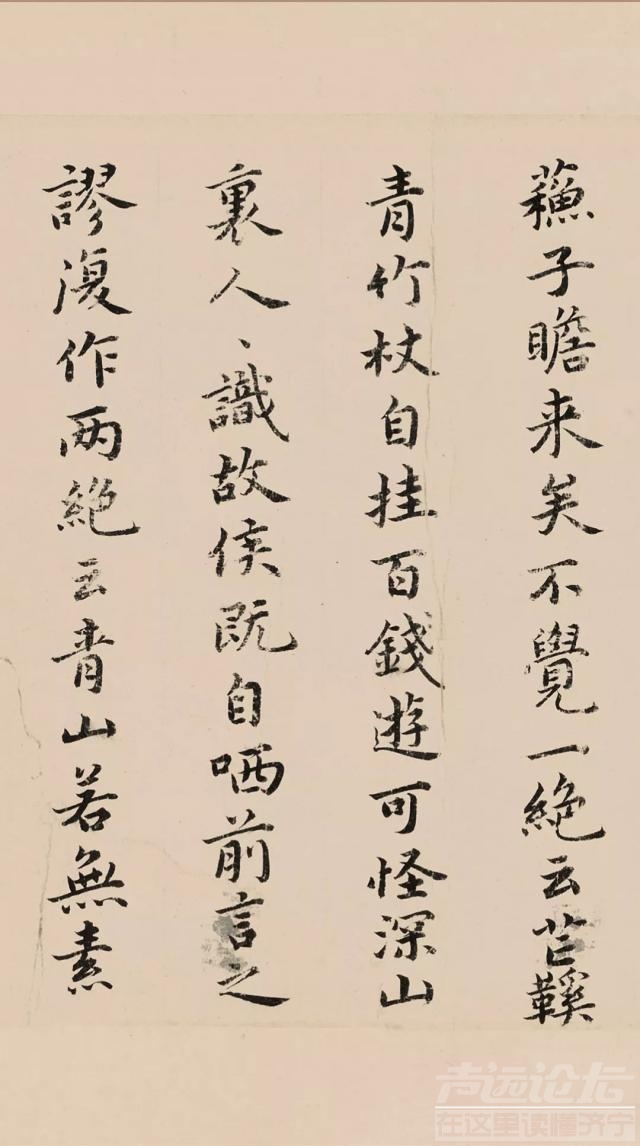 蘓子瞻来矣不覺一絶云芒鞵
青竹杖自挂百錢遊可怪深山
裏人、識故侯既自哂前言之
謬復作两絶云青山若無素
声远论坛
在这里读懂济宁